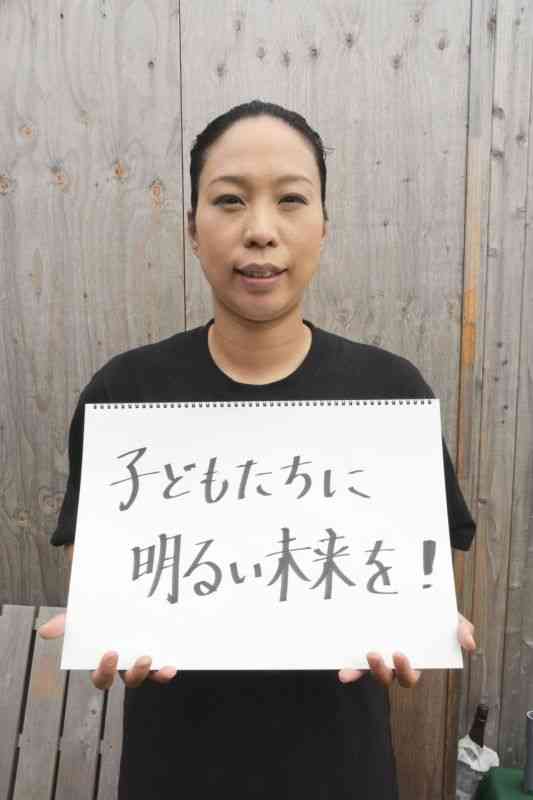 子どもたちに
明るい未来を!